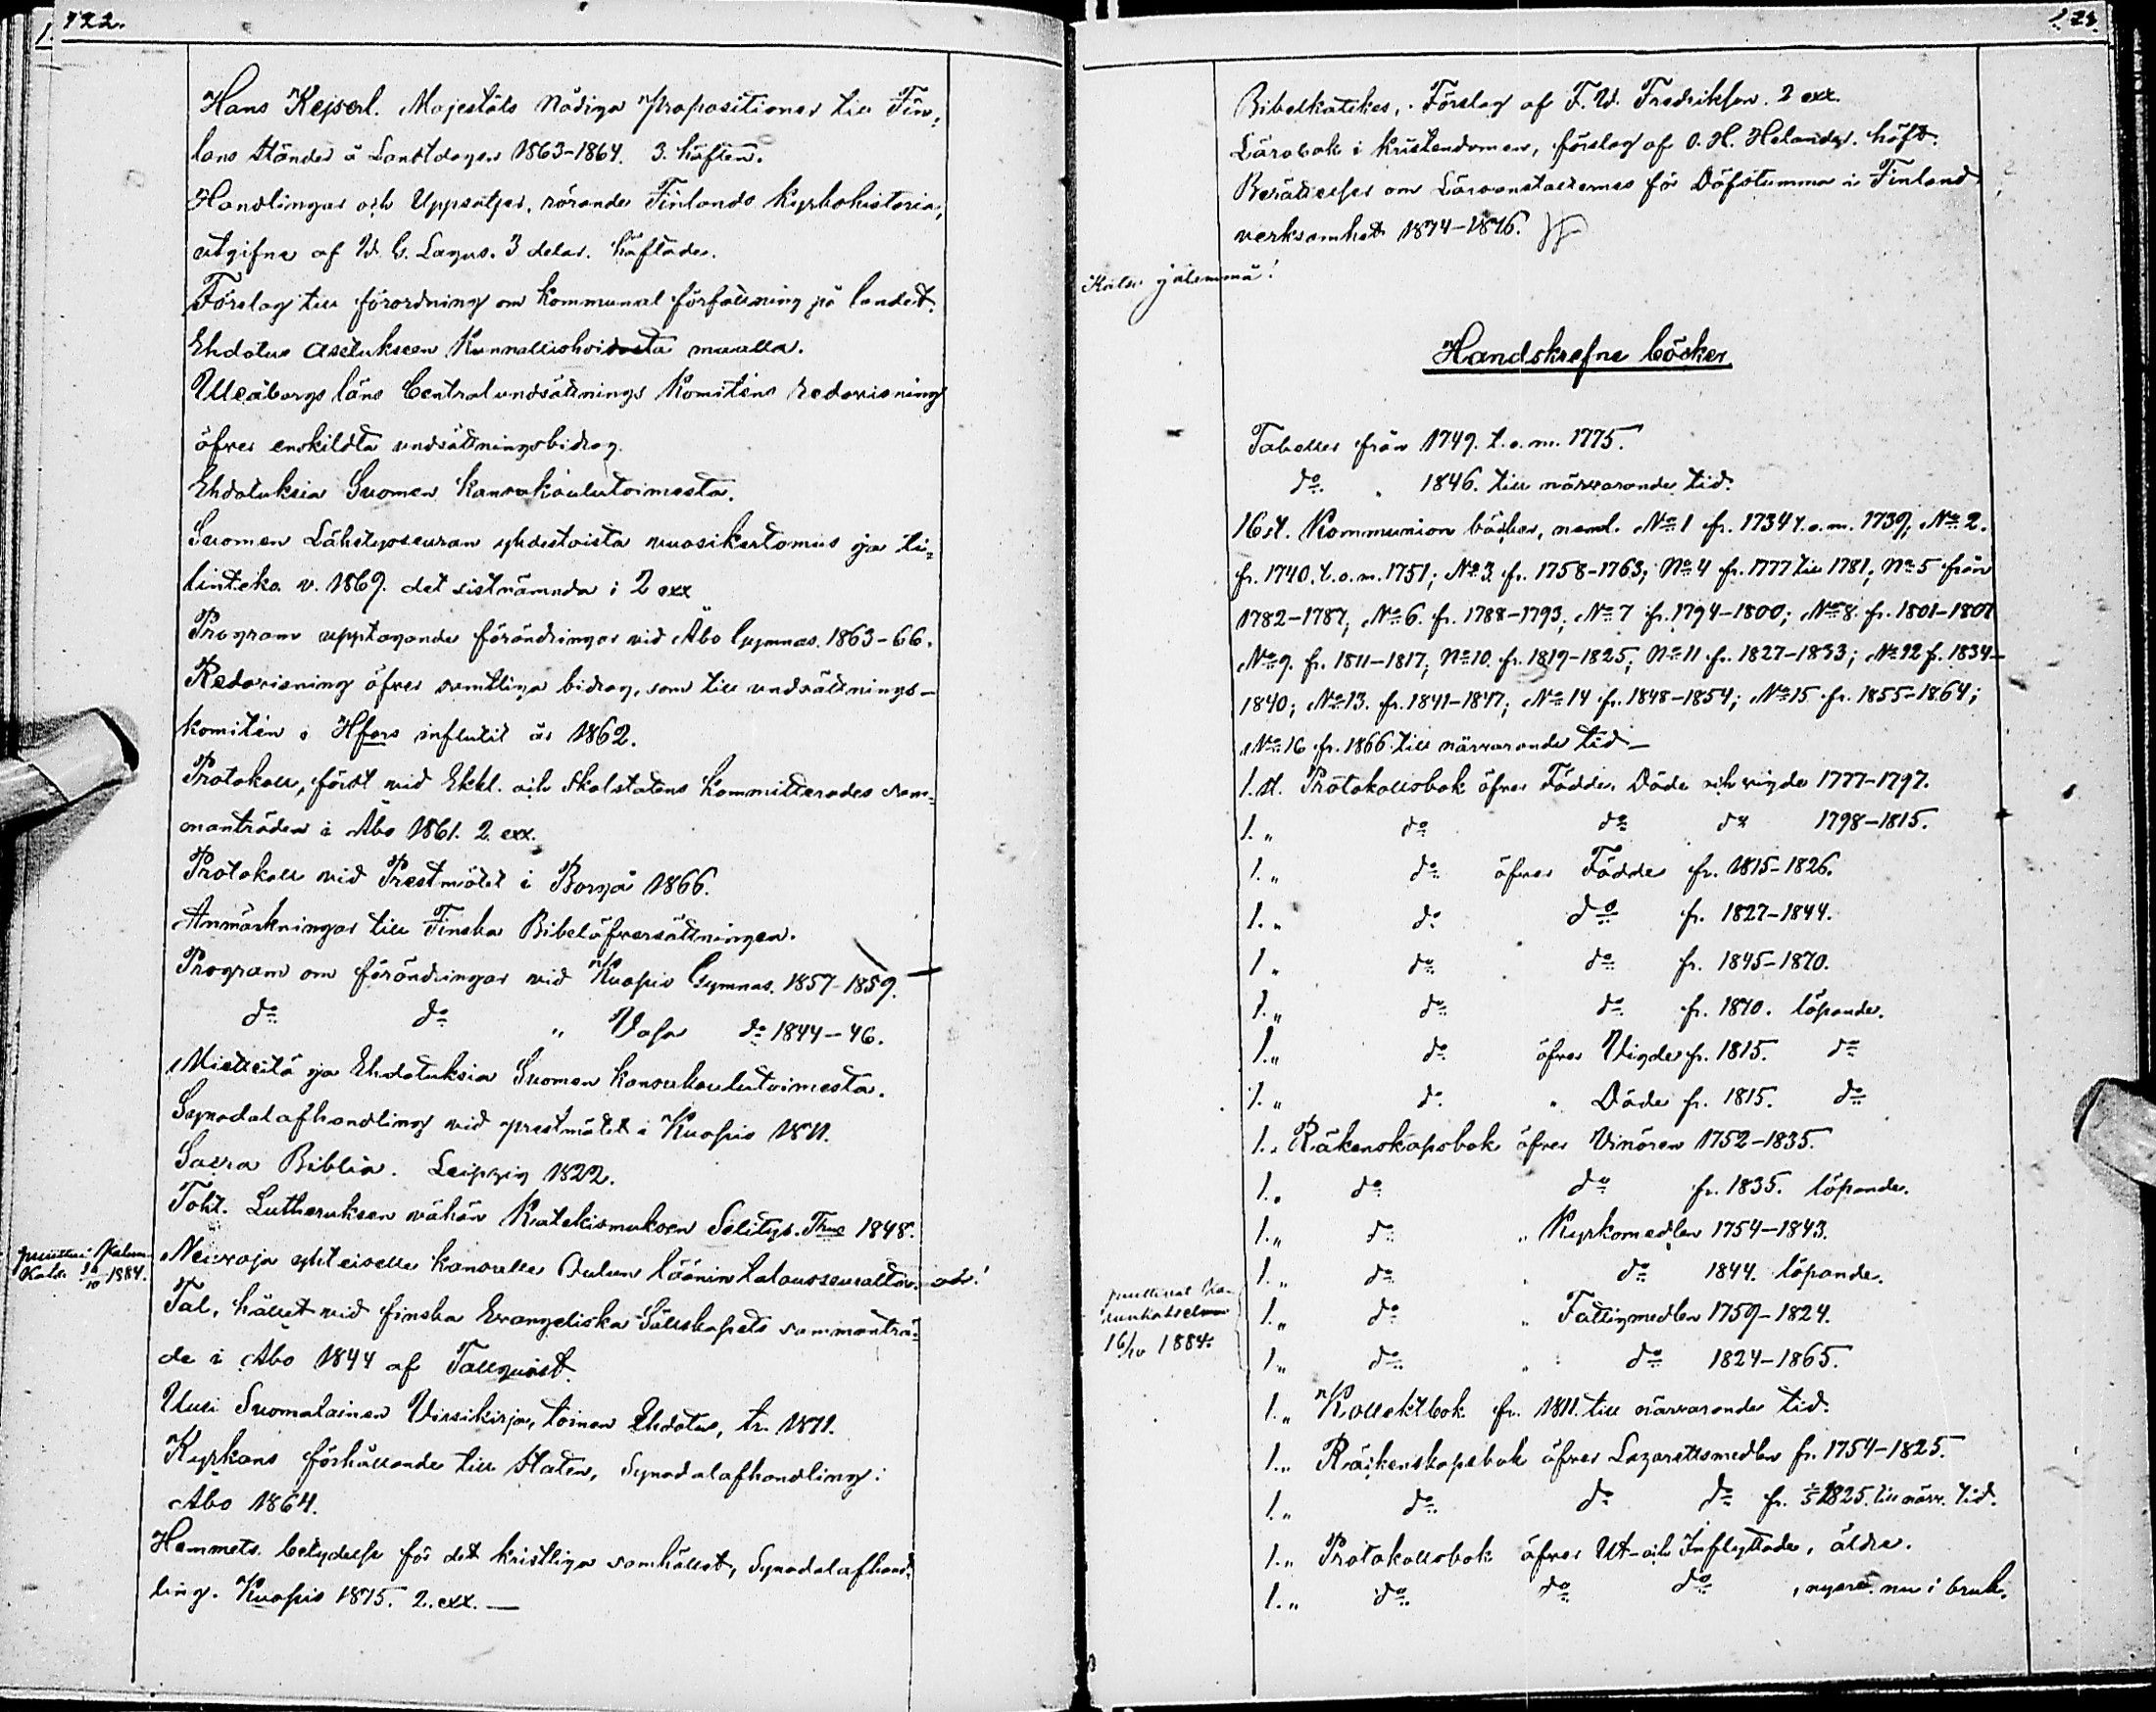 122.
Hans Kejserl. Majestäts Nådiga Propositioner till Fin-
lans Ständer å Landtdagen 1863-1864. 3. häften.
Handlingar och Uppsatser, rörande Finlands Kyrkohistoria,
utgifne af W. G. Lagus. 3 delar. häftade.
Förslag till förordning om Kommunal författning på landet.
Ehdotus Asetukseen Kunnallishoidosta maalla.
Uleåborgs läns Centralundsättnings Komiténs redovisning
öfver enskildta undsättningsbidrag.
Ehdotuksia Suomen Kansakoulutoimesta.
Suomen Lähetysseuran yhdestoista vuosikertomus ja ti-
linteko v. 1869. det sistnämnda i 2 exx
Program upptagande förändringar vid Åbo Gymnas. 1863-66.
Redovisning öfver samtliga bidrag, som till undsättnings-
komitén i Hfors influtit år 1862.
Protokoll, fördt vid Ekkl. och Skolstatens Kommitterades sam-
manträden i Åbo 1861. 2 exx.
Protokoll vid Prestmötet i Borgå 1866.
Anmärkningar till Finska Bibelöfversättningen.
Program om förändringar vid Kuopio Gymnas. 1857-1859.
do do " Vasa do 1844-46.
Mietteitä ja Ehdotuksia Suomen kansakoulutoimesta.
Synodalafhandling vid prestmötet i Kuopio 1811.
Sacra Biblia. Leipzig 1822.
Toht. Lutheruksen vähän Katekismuksen Selitys. Thus 1848.
puuttui Kalun
Kats. 16/10 1884.
Neuvoja yhteiselle kansalle Oulun läänin talousseuralta.
Tal, hållet vid finska Evangeliska Sällskapets sammanträ-
de i Åbo 1844 af Tallqvist.
Uusi Suomalainen Virsikirja, toinen Ehdotus, tr. 1871.
Kyrkans förhållande till Staten, Synodalafhandling i
Åbo 1864.
Hemmets betydelse för det kristliga samhället, Synodalafhand-
ling. Kuopio 1875. 2. exx. —
123.
Bibelkatikes, Förslag af F. W. Fredriksen. 2 exx.
Lärobok i kristendomen, förslag af O. H. Helander. häft.
Berättelser om Läroanstalternas för Döfstumma i Finland
verksamhet 1874-1876.
Katso jälemmä!
Handskrefne böcker
Tabeller från 1749. t.o.m. 1775.
do. " 1846. till närvarande tid.
16 st. Kommunion böcker, neml. No 1 fr. 1734 t.o.m. 1739; No 2.
fr. 1740. t.o.m. 1751; No 3 fr. 1758-1763; No 4 fr. 1777 till 1781; No 5 från
1782-1787; No 6. fr. 1788-1793; No 7 fr. 1794-1800; No 8. fr. 1801-1807
No 9. fr. 1811-1817; No 10. fr. 1819-1825; No 11 fr. 1827-1833; No 12 f. 1834-
1840; No 13. fr. 1841-1847; No 14 fr. 1848-1854; No 15 fr. 1855-1864;
No 16 fr. 1866 till närvarande tid—
1. st. Protokollsbok öfver Födde, Döde och vigde 1777-1797.
1. " do do do 1798-1815.
1. " do öfver Födde fr. 1815-1826.
1. " do do fr. 1827-1844.
1 " do do fr. 1845-1870.
1. " do do fr. 1870. löpande.
1. " do öfver Vigde fr. 1815. do
1. " do " Döde fr. 1815. do
1. " Räkenskapsbok öfver Vinören 1752-1835.
1. " do do fr. 1835. löpande.
1. " do " Kyrkomedlen 1754-1843.
1. " do " do 1844. löpande.
16/10 1884.
1. " do " Fattigmedlen 1759-1824.
1. " do " do 1824-1865.
1. " Kollektbok fr. 1811. till närvarande tid.
1. " Räkenskapsbok öfver Lazarettsmedlen fr. 1754-1825.
1. " do do do fr. 1825. till närv. tid.
1. " Protokollsbok öfver Ut- och Inflyttade, äldre.
1. " do do do , nyare nu i bruk.